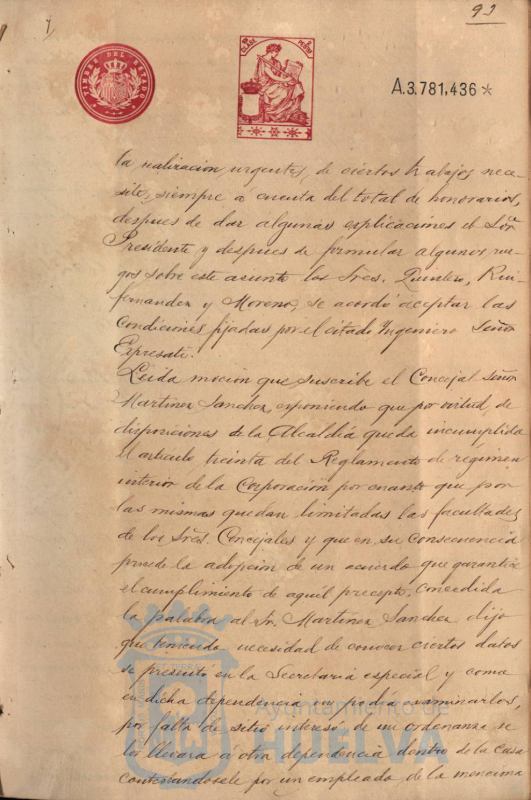 93
TIMBRE DEL ESTADO
A.3.781,436 *
la realizacion urgentes, de ciertos trabajos nece-
site, siempre á cuenta del total de honorarios,
despues de dar algunas esplicaciones el Sor.
Presidente y despues de formular algunos rue-
gos sobre este asunto los Sres. Quintero, Ruiz
fernandez y Moreno, se acordó aceptar las
condiciones fijadas por el citado Ingeniero Señor
Expresati.
Leida mocion que suscribe el Concejal Señor
Martinez Sanchez, exponiendo que por virtud, de
disposiciones de la Alcaldiá queda incumplida
el articulo treinta del Reglamento de regimen
interior de la Corporación por cuanto que por
las mismas quedan limitadas las facultades
de los Sres. Concejales y que en su consecuencia
procede la adopcion de un acuerdo que garantice
el cumplimiento de aquél precepto, concedida
la palabra al Sr. Martinez Sanchez dijo
que teniendo necesidad de conocer ciertos datos
se presentó en la Secretaria especial y como
en dicha dependencia no podia examinarlos,
por falta de sitio interesó de un ordenanza se
los llevara á otra dependencia dentro de la Casa
contestandosele por un empleado de la mencima
Ayuntamiento de
HUELVA